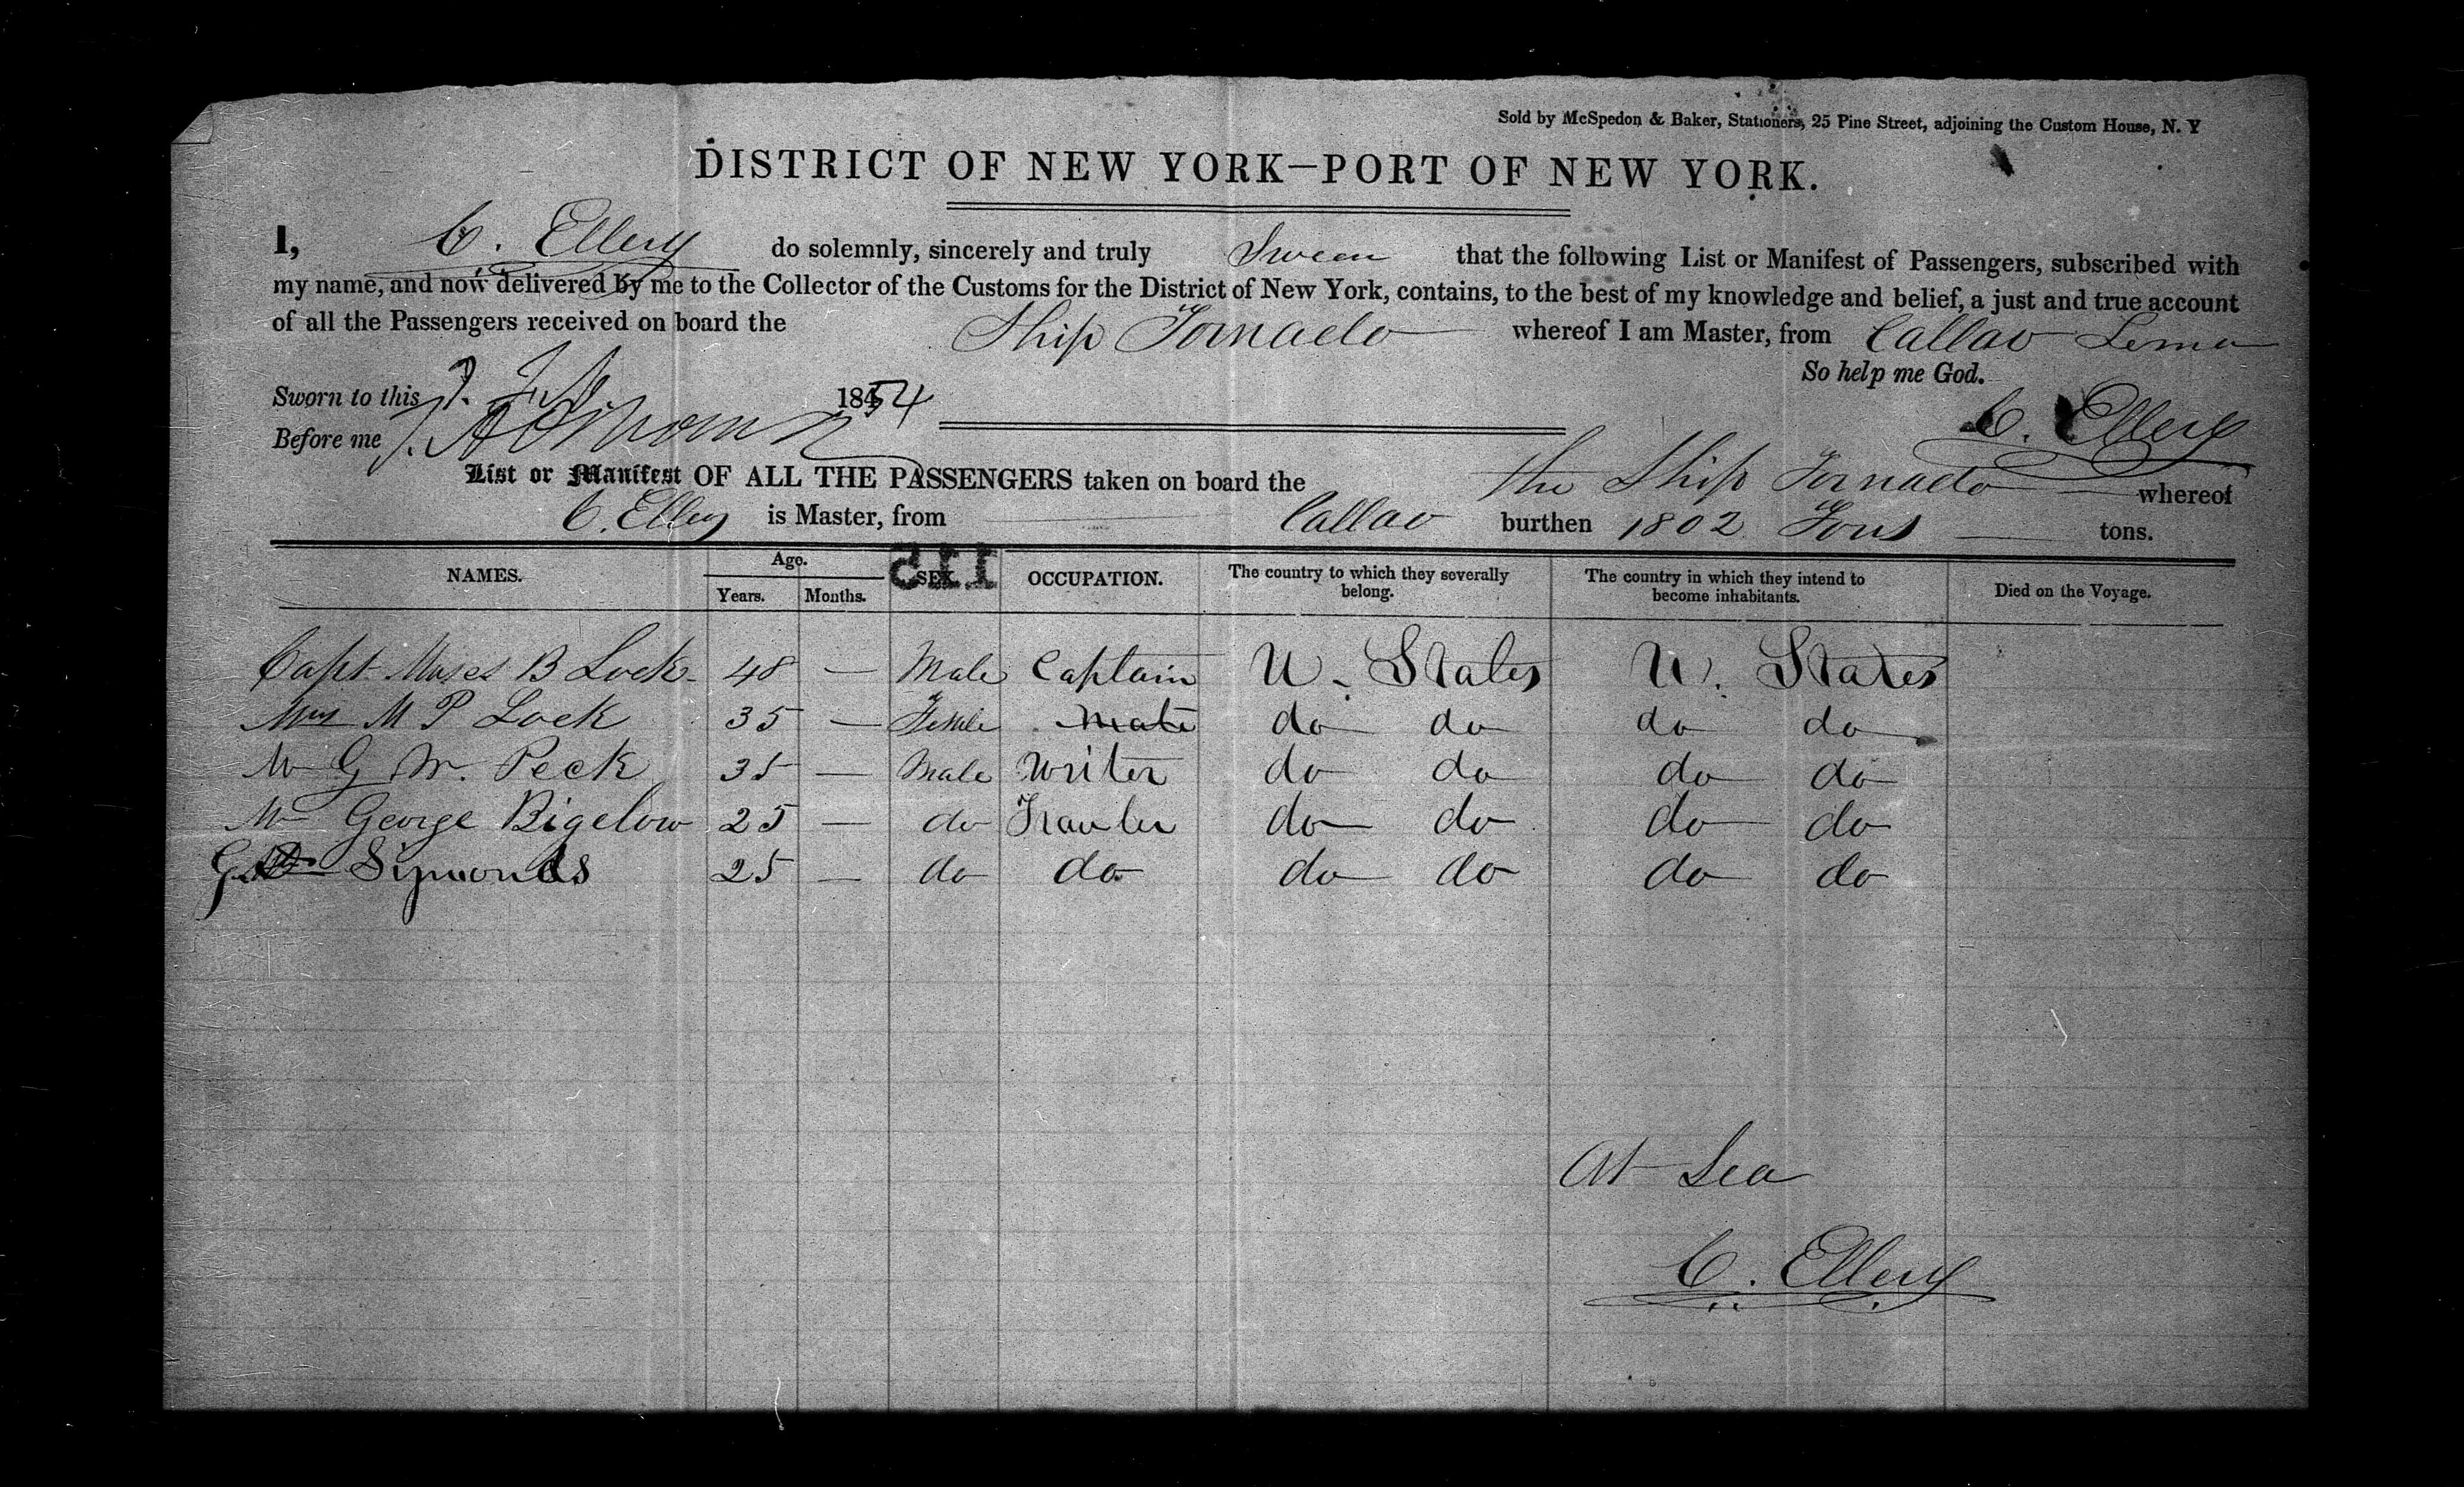 Sold by McSpedon & Baker, Stationers, 25 Pine Street, adjoining the Custom House, N. Y
DISTRICT OF NEW YORK—PORT OF NEW YORK.
I, C. Ellery do solemnly, sincerely and truly Swear that the following List or Manifest of Passengers, subscribed with
my name, and now delivered by me to the Collector of the Customs for the District of New York, contains, to the best of my knowledge and belief, a just and true account
of all the Passengers received on board the Ship Tornado whereof I am Master, from Callao Lima
So help me God.
Sworn to this 1854
C. Ellery
Before me
List or Manifest OF ALL THE PASSENGERS taken on board the the Ship Tornado whereof
C. Ellery is Master, from Callao burthen 1802 Tons tons.
115
NAMES. Age. Years. Months. SEX. OCCUPATION. The country to which they severally belong. The country in which they intend to become inhabitants. Died on the Voyage.
Capt Moses B Lock 48 — Male Captain U. States U. States
Mrs M P Lock 35 — Female mate do do do do
Mr G W. Peck 35 — Male Writer do do do do
Mr George Bigelow 25 — do do do do do
Symonds 25 — do do do do do do
At Sea
C. Ellery